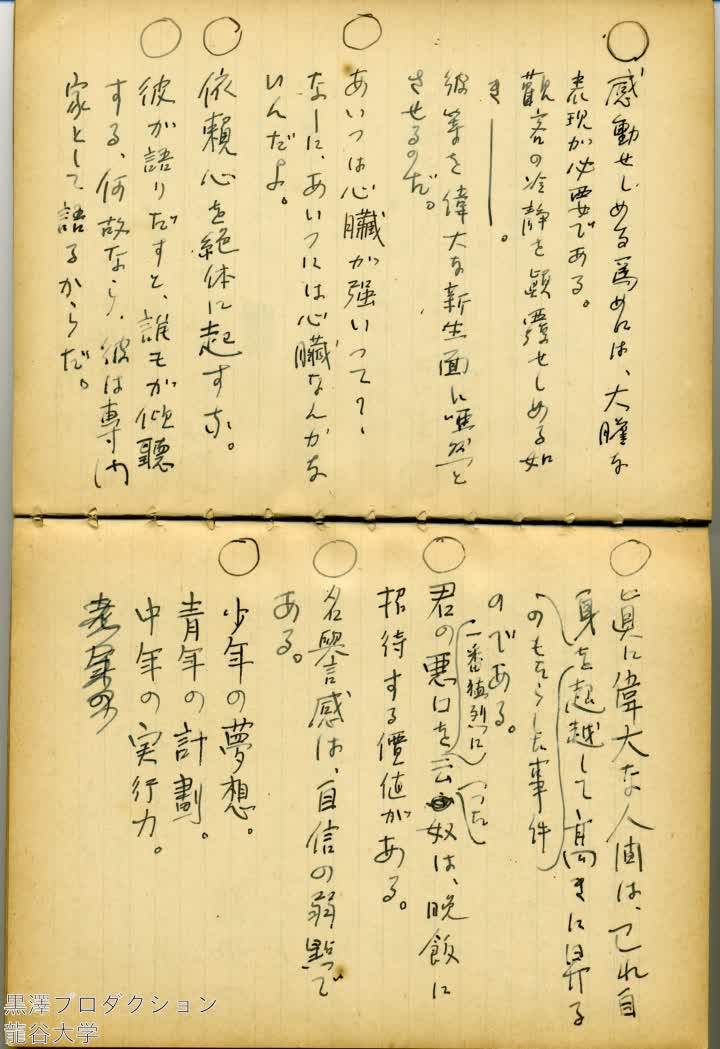 ○感動せしめる為めには、大膽な
表現が必要である。
觀客の冷静を顚覆せしめる如
き――。
彼等を偉大な新生面に唖然と
させるのだ。
○あいつは心臓が强いって？、
なーに、あいつには心臓なんかな
いんだよ。
○依賴心を絶体に起すな。
○彼が語りだすと、誰もが傾聽
する、何故なら、彼は專門
家として語るからだ。
○眞に偉大な人間は、己れ自
身を超越して高きに昇る
のもたらした事件
のである。
一番猛烈に
○君の悪口を云 奴は、晩飯に
つた
招待する價値がある。
○名譽感は、自信の弱點で
ある。
○少年の夢想。
青年の計劃。
中年の実行力。
黒澤プロダクション
龍谷大学